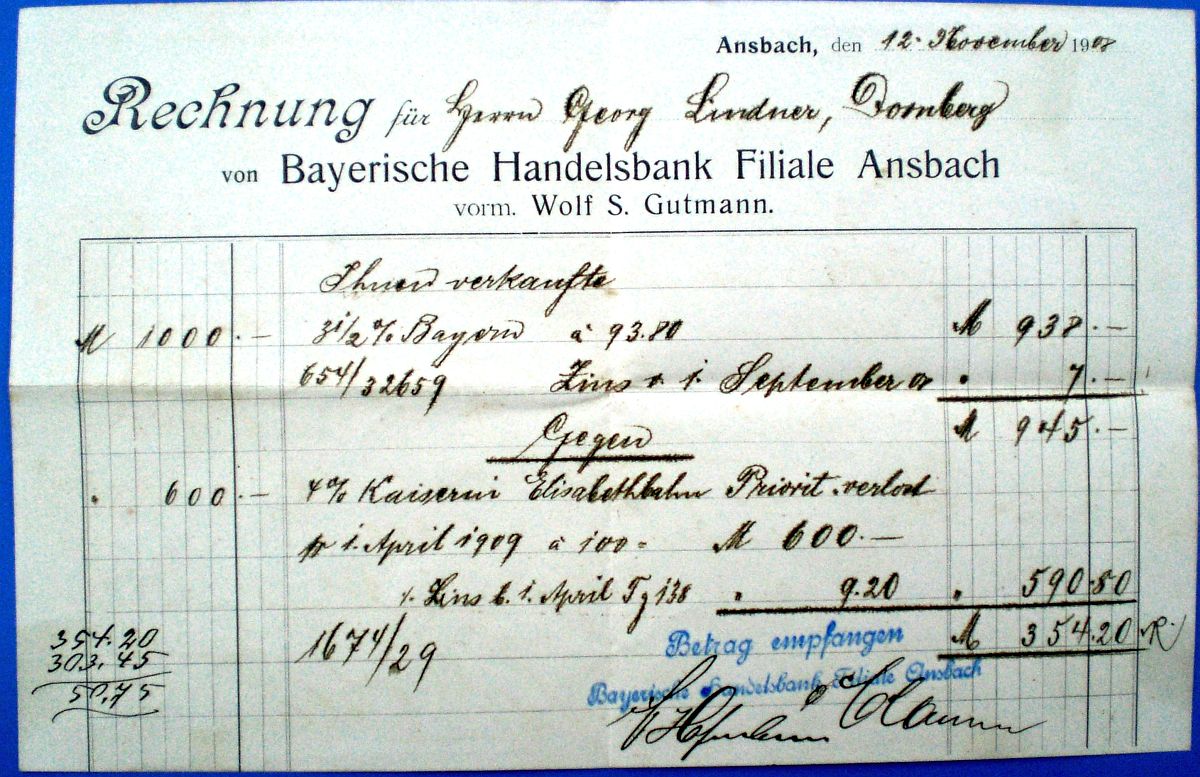 Ansbach, den 12. November 1908
Rechnung für Herrn Georg Lindner, Dornberg
von Bayerische Handelsbank Filiale Ansbach
vorm. Wolf S. Gutmann.
Ihnen verkaufte
M 1000.— 3 1/2 % Bayern à 93.80 M 938.—
654/32659 Zins v. 1. September 08 " 7.—
M 945.—
Gegen
" 600.— 4% Kaiserin Elisabethbahn Priorit. verlost
p 1. April 1909 à 100 = M 600.—
1. Zins b. 1. April Tg 138 " 9.20 " 590.80
354.20 1674/29 M 354.20
303.45
50.75
Betrag empfangen
Bayerische Handelsbank Filiale Ansbach